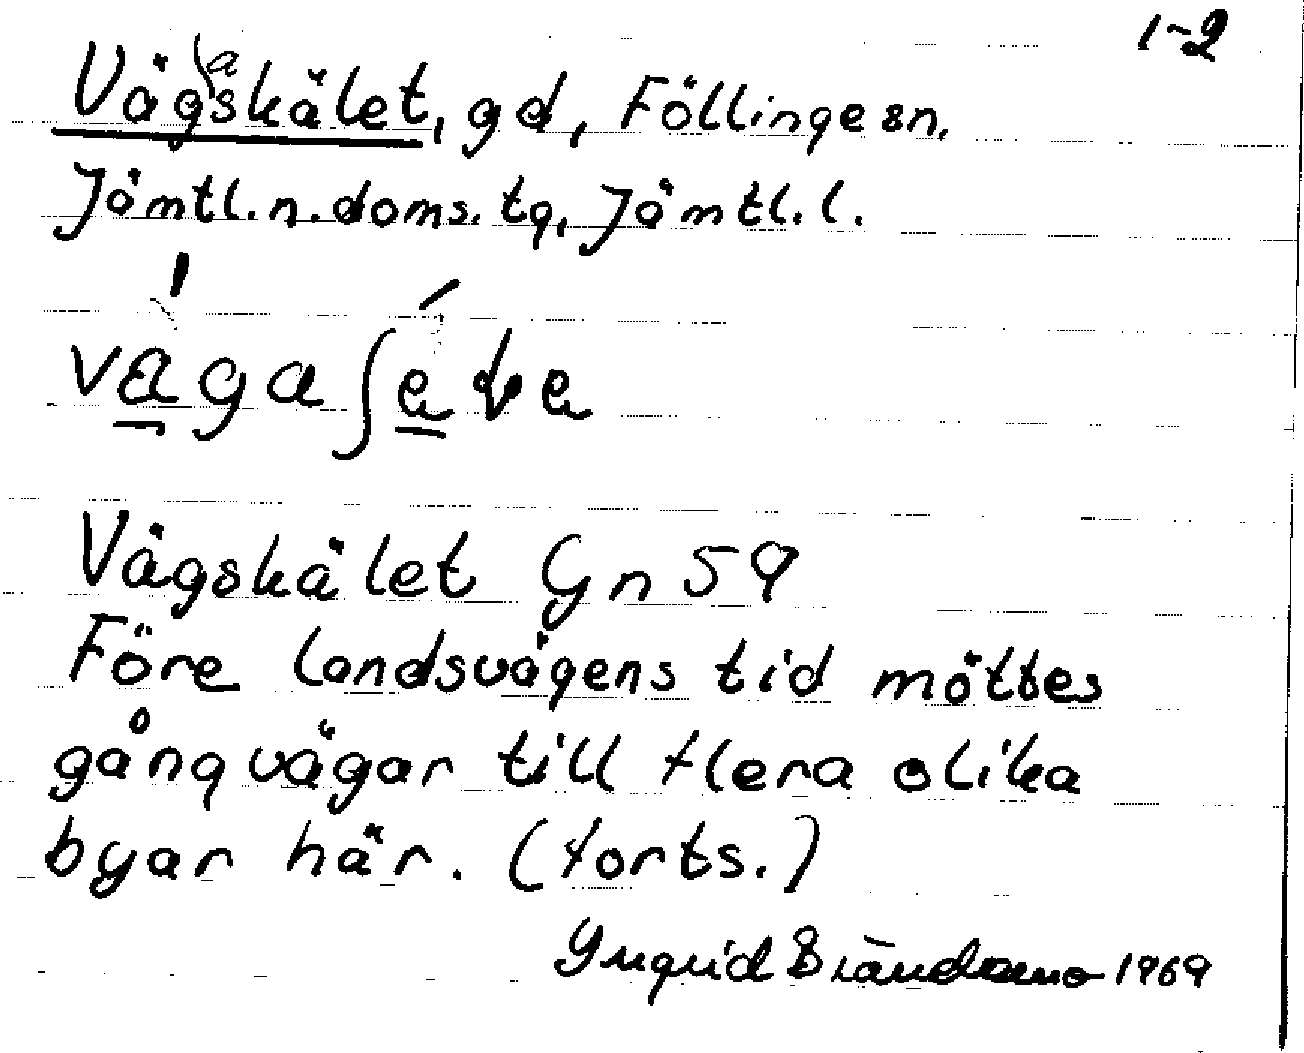 1-2
Vägaskälet, gd, Föllinge sn,
Jämtl. n. doms. tg, Jämtl. l.
Vägskälet Gn 59
Före landsvägens tid möttes
gångvägar till flera olika
byar här. (forts.)
Ingrid Brändemo 1969